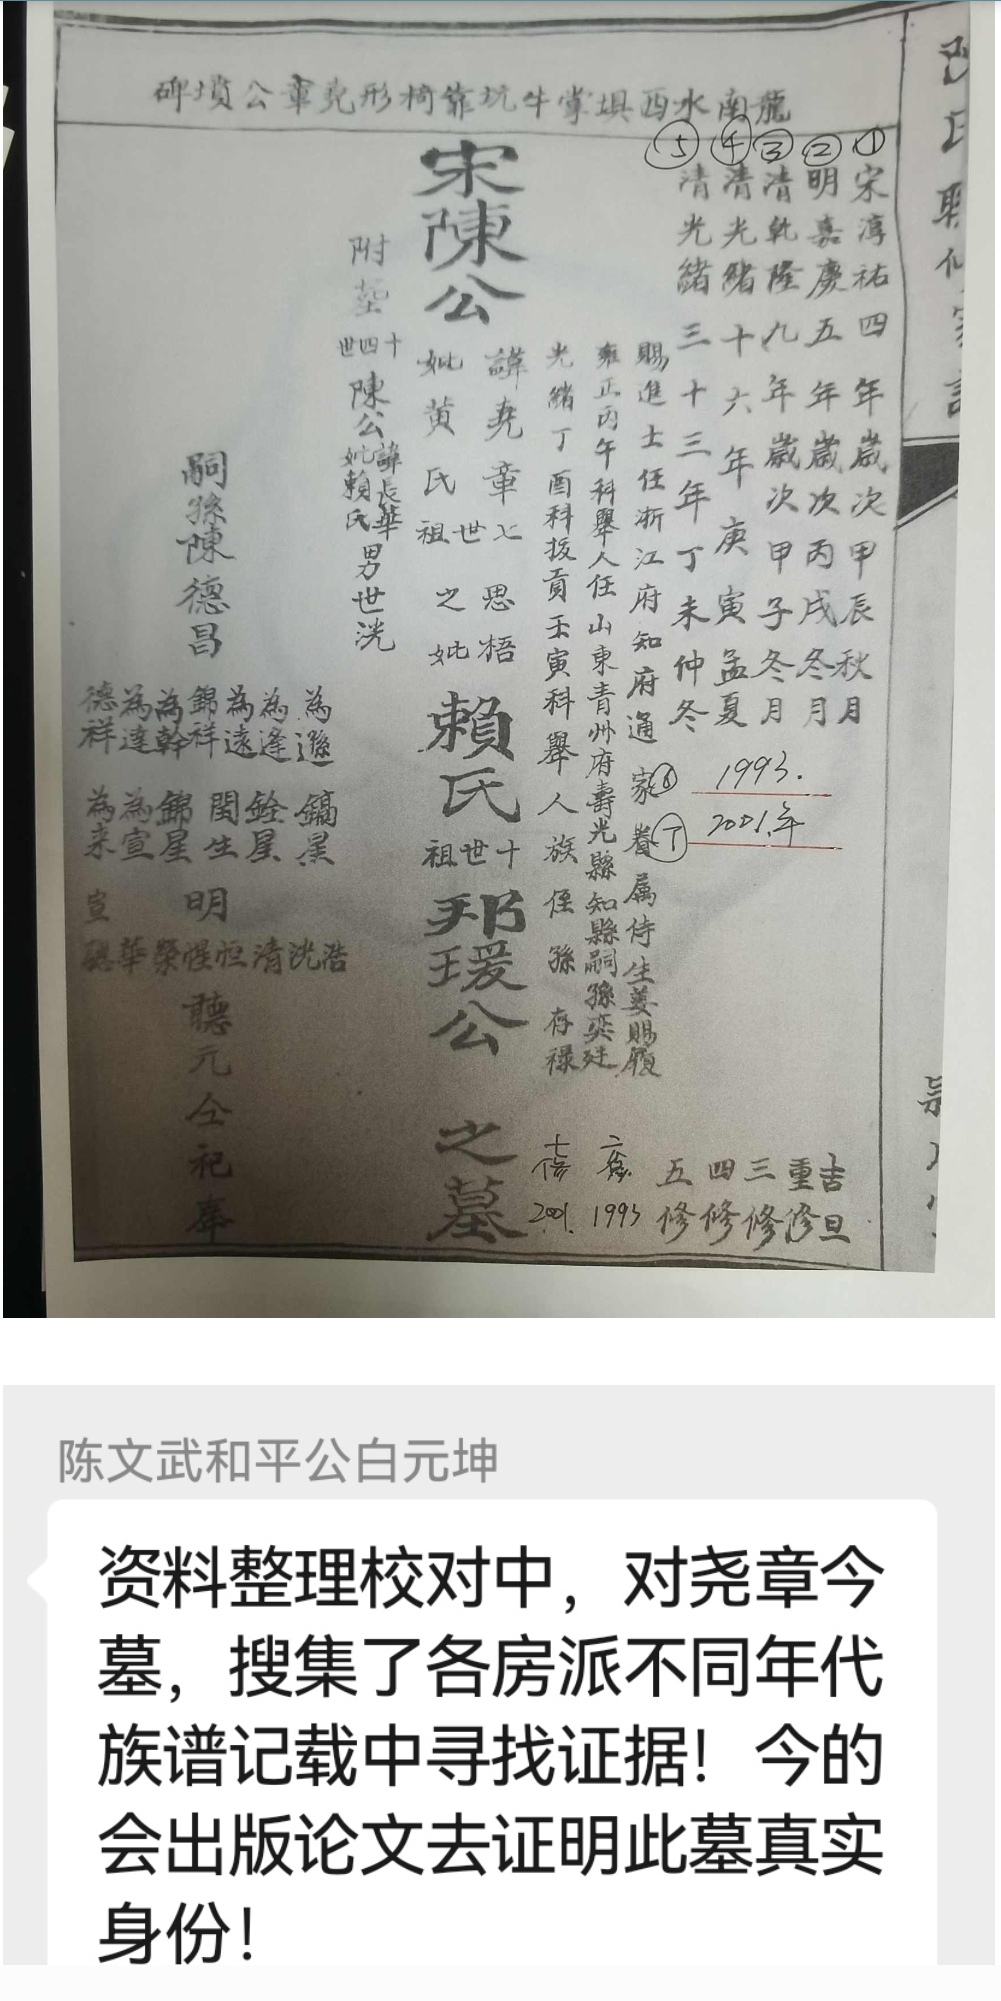 龍南水西垻掌牛坑靠椅形堯章公墳碑
① 宋淳祐四年歲次甲辰秋月 吉旦
② 明嘉慶五年歲次丙戌冬月 重修
③ 清乾隆九年歲次甲子冬月 三修
④ 清光緒十六年庚寅孟夏 四修
⑤ 清光緒三十三年丁未仲冬 五修
⑥ 1993.
⑦ 2001.年
賜進士任浙江府知府通家眷属侍生姜賜履
雍正丙午科舉人任山東青州府壽光縣知縣嗣孫奕廷
六修 1993
光緒丁酉科拔貢壬寅科舉人族侄孫存禄
七修 2001.
宋陳公
諱堯章七思梧
妣黄氏世祖之妣
賴氏
十世祖
邦瑗公
之墓
附塟
十四世
陳公
諱長華
妣賴氏
男世洸
嗣孫陳德昌
為遜 為逢 為遠 錦祥 為幹 為達 德祥
鎬星 銓星 閏生 錦星 為宣 為来
明
宣
浩洸清恒惺榮華聰
聽元仝祀奉
陈文武和平公白元坤
资料整理校对中，对尧章今
墓，搜集了各房派不同年代
族谱记载中寻找证据！今的
会出版论文去证明此墓真实
身份！